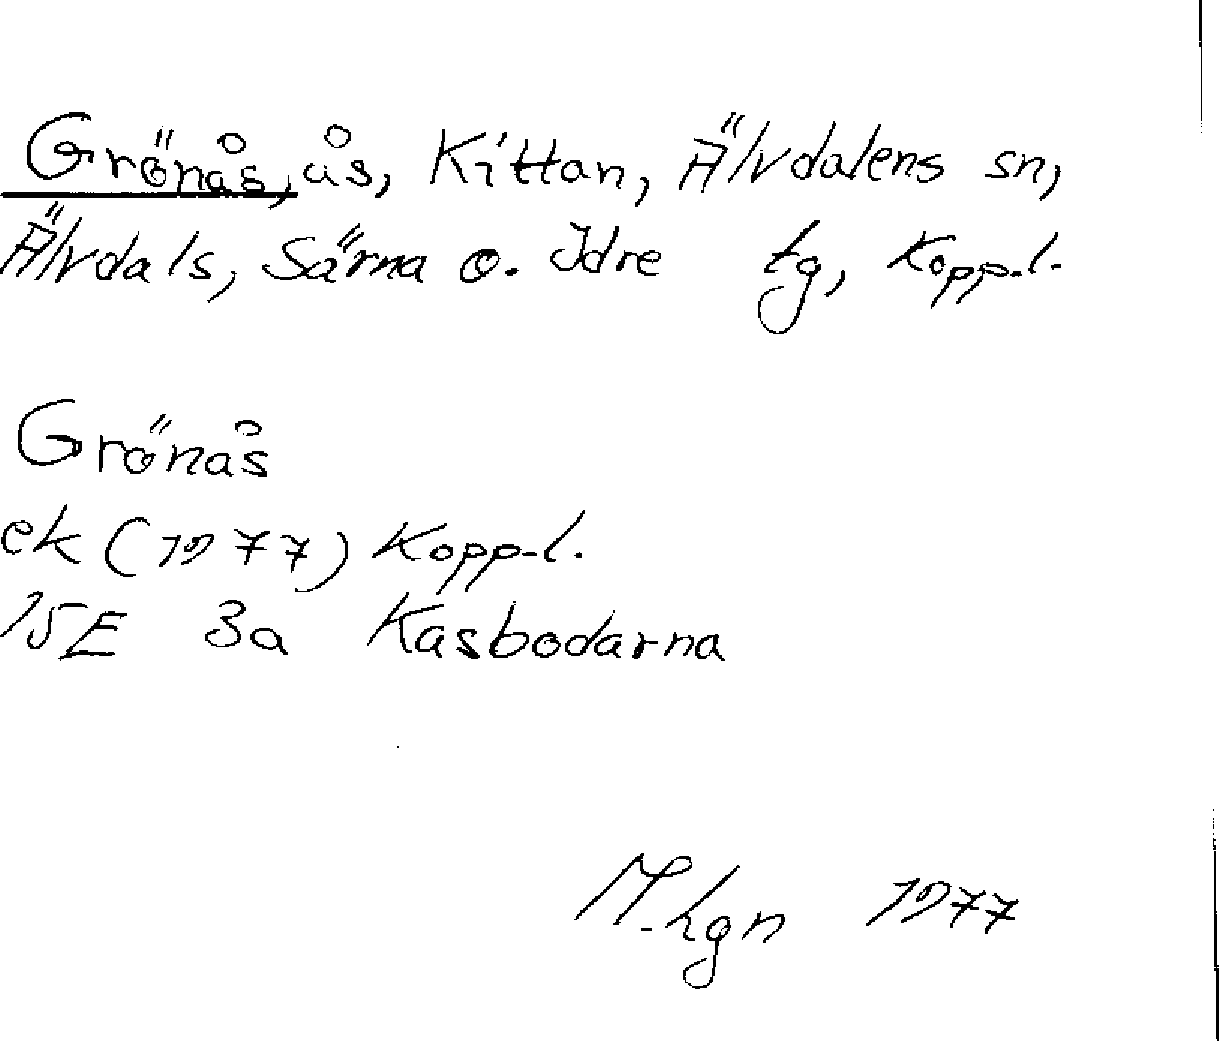 Grönås, ås, Kittan, Älvdalens sn,
Älvdals, Särna o. Idre tg, Kopp.l.
Grönås
ek (1977) Kopp.l.
15E 3a Kåsbodarna
M.hgn 1977